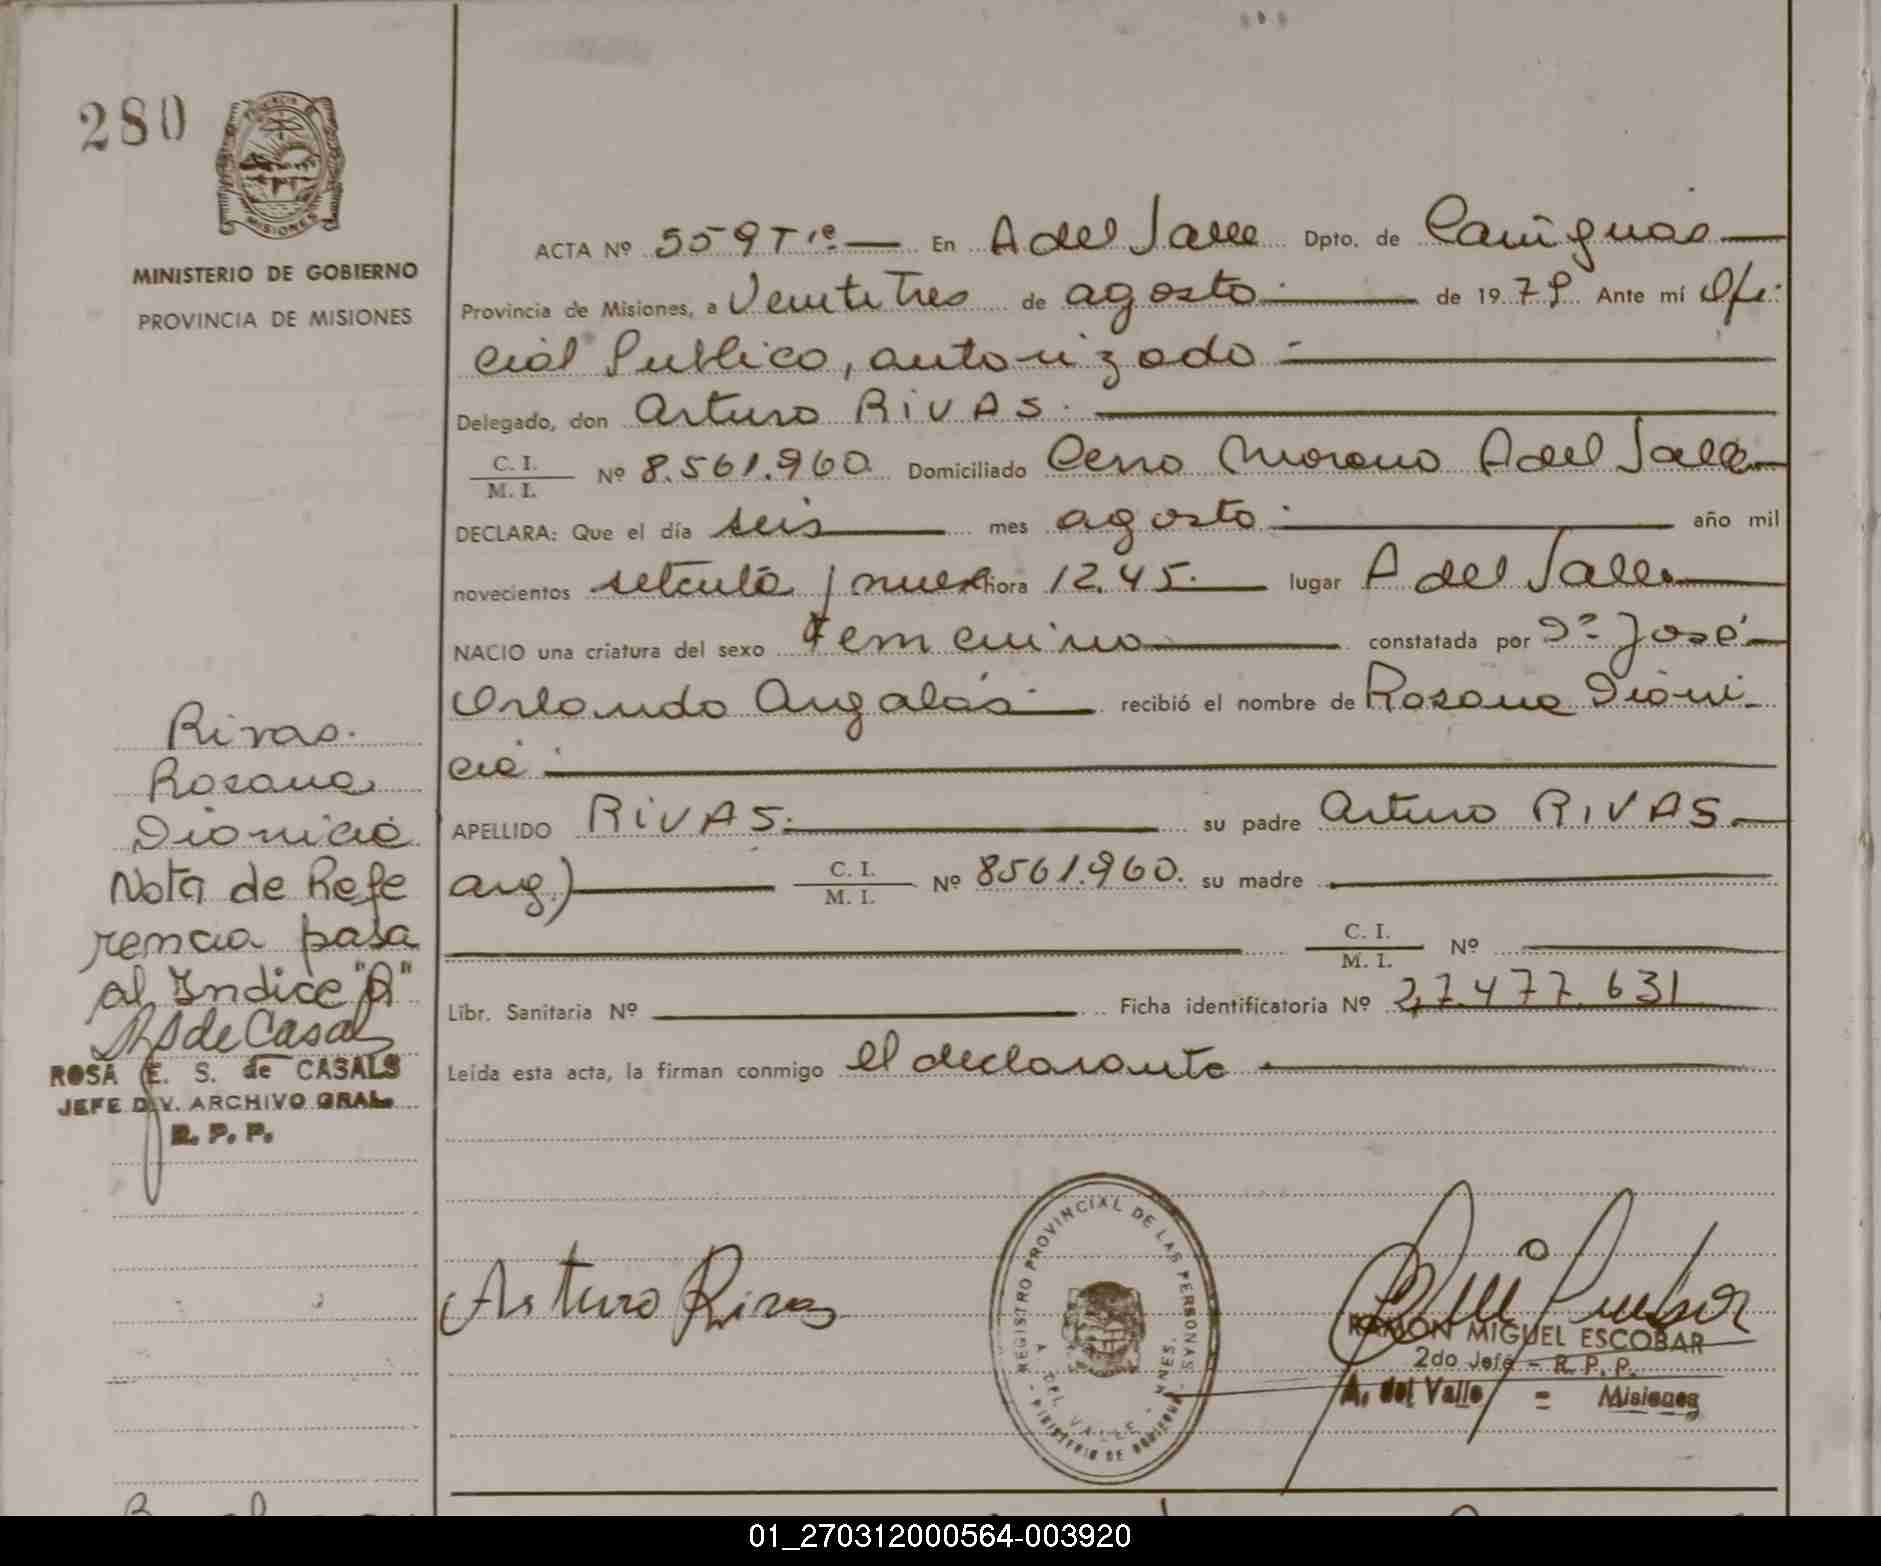 280
MINISTERIO DE GOBIERNO
PROVINCIA DE MISIONES
ACTA Nº 559 Tre En A del Valle Dpto. de Cainguás
Provincia de Misiones, a Veintitres de agosto de 1979 Ante mí Ofi-
cial Publico, autorizado
Delegado, don Arturo RIVAS.
C. I.
M. I.
Nº 8.561.960 Domiciliado Cerro Moreno A del Valle
DECLARA: Que el día seis mes agosto año mil
novecientos setenta y nueve hora 12.45. lugar A del Valle
NACIO una criatura del sexo Femenino constatada por Dr José
Orlando recibió el nombre de Rosana Dioni-
cia
APELLIDO RIVAS. su padre Arturo RIVAS
arg.) C. I.
M. I.
Nº 8561.960. su madre
C. I.
M. I.
Nº
Libr. Sanitaria Nº Ficha identificatoria Nº 27.477.631
Leída esta acta, la firman conmigo el declarante
Rivas.
Rosana
Dionicia
Nota de Refe
rencia pasa
al Indice "A"
RS de Casals
ROSA E. S. de CASALS
JEFE DIV. ARCHIVO GRAL.
R. P. P.
Arturo Rivas
REGISTRO PROVINCIAL DE LAS PERSONAS
A. DEL VALLE - MNES.
MINISTERIO DE GOBIERNO
RAMON MIGUEL ESCOBAR
2do Jefe - R. P. P.
A. del Valle = Misiones
01_270312000564-003920